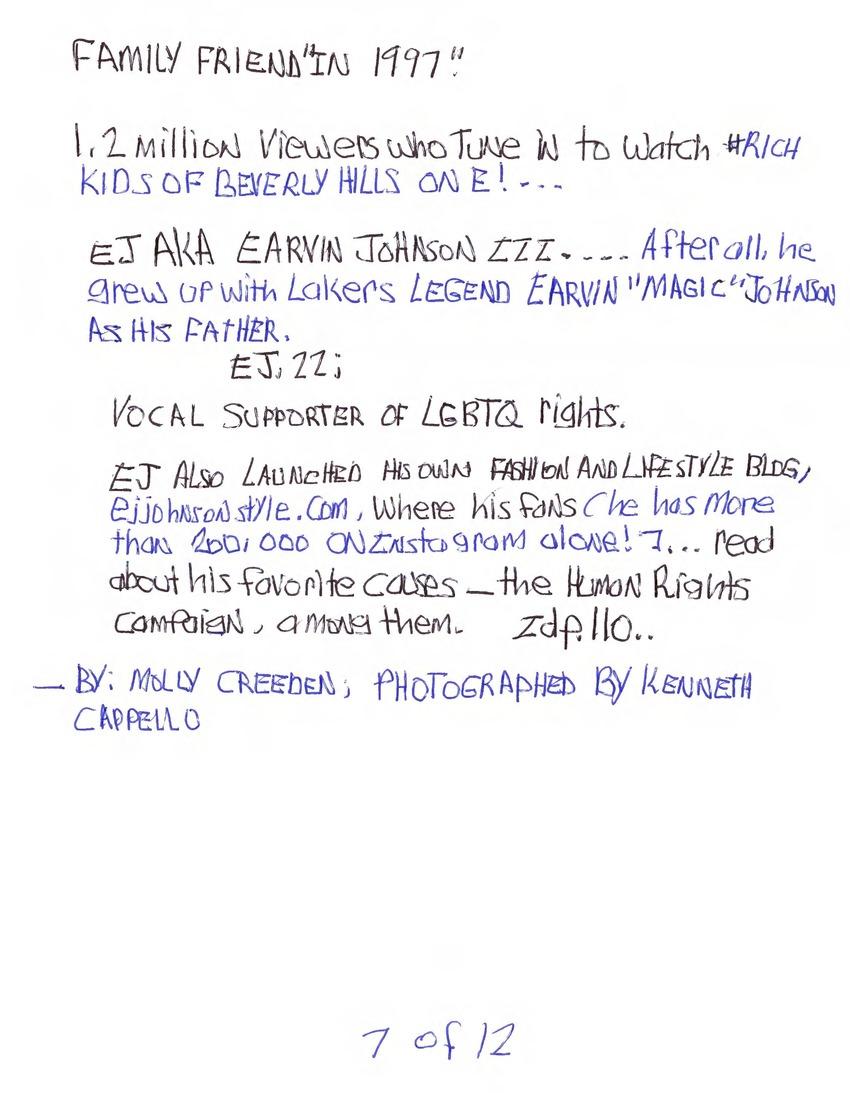 FAMILY FRIEND "IN 1997"
1.2 million Viewers who Tune IN to Watch #RICH
KIDS OF BEVERLY HILLS ON E! ---
EJ AKA EARVIN JOHNSON III. ---- After all, he
grew up with Lakers LEGEND EARVIN "MAGIC" JOHNSON
AS HIS FATHER.
EJ, 22;
VOCAL SUPPORTER OF LGBTQ rights.
EJ ALSO LAUNCHED HIS OWN FASHION AND LIFESTYLE BLOG,
ejjohnsonstyle.com, Where his fans (he has more
than 200,000 ON Instagram alone! ]... read
about his favorite causes — the HUMAN Rights
campaign, among them. Idp.110..
— BY: MOLLY CREEDEN; PHOTOGRAPHED BY KENNETH
CAPPELLO
7 of 12